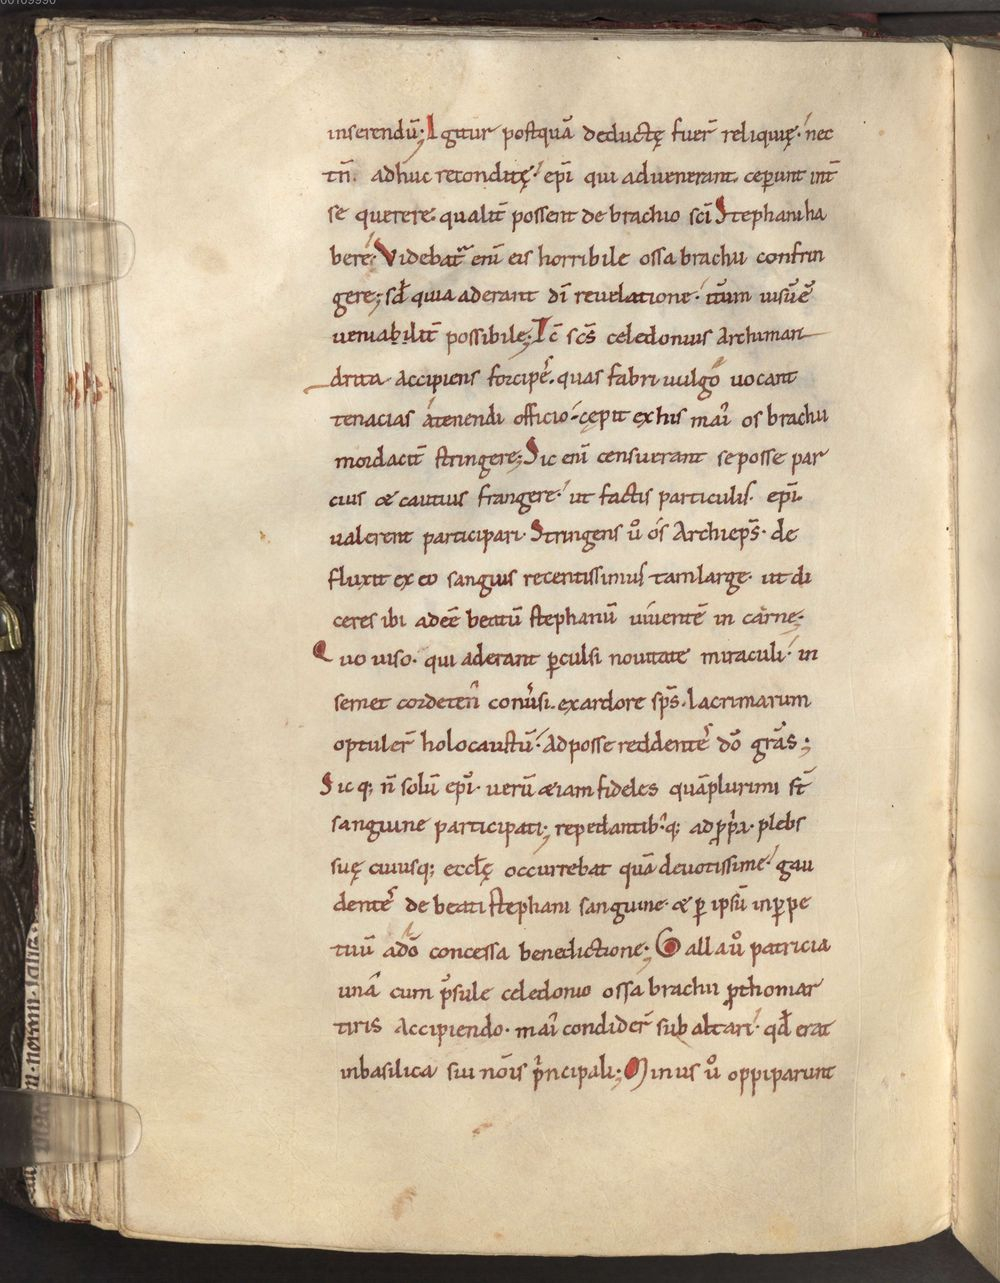 00109990
inserendū; Igitur postquā deductę fuer̄ reliquię· nec
tn̄. adhuc reconditę· epī qui aduenerant. ceperunt int̄
se querere· qualit̄ possent de brachio sc̄i Stephani ha
bere· Videbat̄ enī eis horribile ossa brachii confrin
gere; sꝫ quia aderant dī reuelatione· itū̄m uisū ē
veniabilit̄ possibile; Tc̄ sc̄s celedonius Archiman
drita· accipiens forcipē. quas fabri uulgo uocant
tenacias átenendi officio· cępit ex his mai᷑ os brachii
mordacit̄ stringere; Sic enī censuerant se posse par
cius æ cautius frangere· ut factis particulis· epī.
ualerent participari· Stringens ů ós Archiep̄s· de
fluxit ex eo sanguis recentissimus tam large· ut di
ceres ibi adeē beatū stephanū uiuentē in carne;
Quo uiso· qui aderant ꝑculsi nouitate miraculi· in
semet cordeten᷑ conu᷑si. ex ardore sp̄s. lacrimarum
optuler̄ holocaustū· Ad posse reddentes dō grās;
Sicq; n̄ solū epī· uerū æiam fideles quāplurimi st̄
sanguine participati; repedantib;q; ad ꝓpria· plebs
suę cuiusq; eccłę occurrebat quā deuotissime· gau
dentes de beati stephani sanguine· æ ꝑ ipsū in ꝑpe
tuū ádō concessa benedictione; Galla ů patricia
unā cum p̄sule celedonio ossa brachii ꝓthomar
tiris Accipiendo· mai᷑ condider̄ sub altari· qđ erat
in basilica sui nōis p̄ncipali; Minus ů oppiparunt